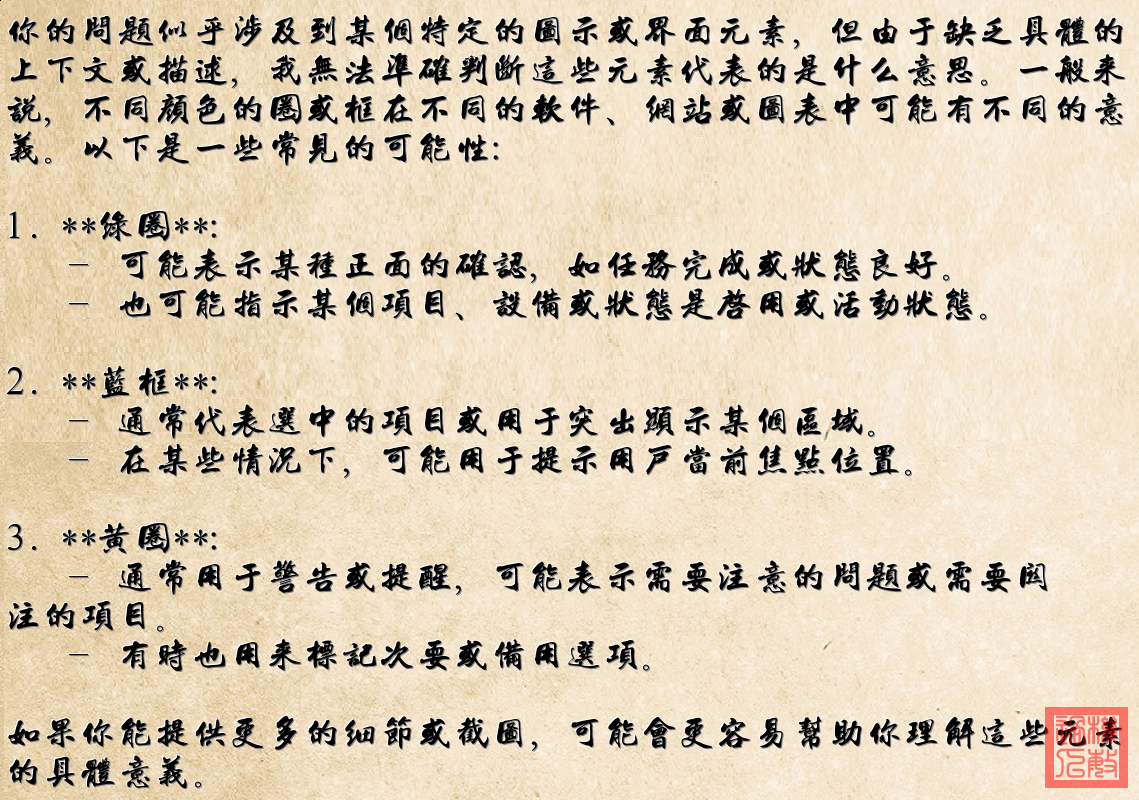 你的問題似乎涉及到某個特定的圖示或界面元素，但由于缺乏具體的
上下文或描述，我無法準確判斷這些元素代表的是什么意思。一般来
説，不同顔色的圈或框在不同的軟件、網站或圖表中可能有不同的意
義。以下是一些常見的可能性：
1. **綠圈**：
– 可能表示某種正面的確認，如任務完成或狀態良好。
– 也可能指示某個項目、設備或狀態是啓用或活動狀態。
2. **藍框**：
– 通常代表選中的項目或用于突出顯示某個區域。
– 在某些情况下，可能用于提示用戸當前焦點位置。
3. **黄圈**：
– 通常用于警告或提醒，可能表示需要注意的問題或需要関
注的項目。
– 有時也用来標記次要或備用選項。
如果你能提供更多的细節或截圖，可能會更容易幫助你理解這些元素
的具體意義。